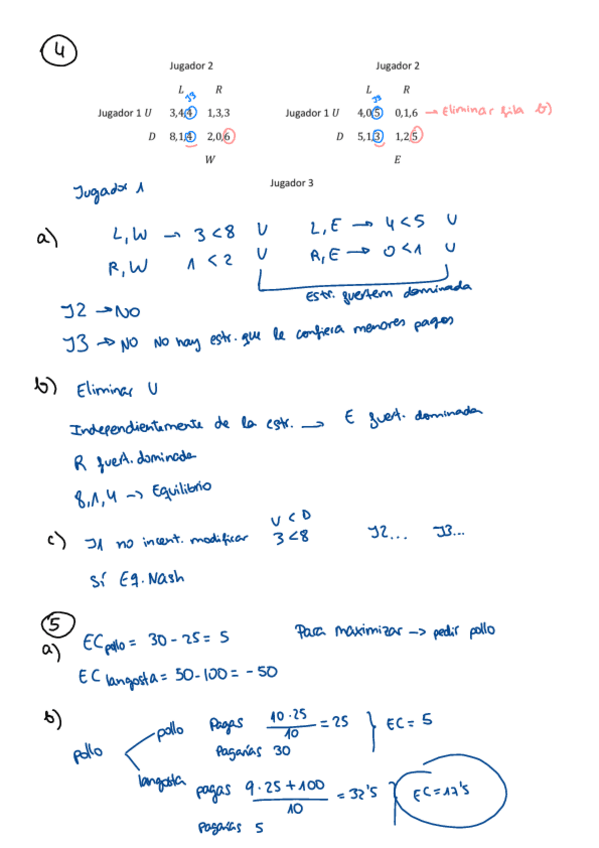 4
Jugador 2 Jugador 2
L R L R
J3 J3
Jugador 1 U 3,4,4 1,3,3 Jugador 1 U 4,0,5 0,1,6 → Eliminar fila b)
D 8,1,4 2,0,6 D 5,1,3 1,2,5
W E
Jugador 3
Jugador 1
a) L,W → 3<8 U L,E → 4<5 U
R,W 1<2 U R,E → 0<1 U
Estr. fuertem dominada
J2 → NO
J3 → NO No hay estr. que le confiera menores pagos
b) Eliminar U
Independientemente de la estr. → E fuert. dominada
R fuert. dominada
8,1,4 → Equilibrio
U<D
c) J1 no incent. modificar 3<8 J2... J3...
Sí Eq. Nash
5
a) EC pollo = 30-25 = 5 Para maximizar → pedir pollo
EC langosta = 50-100 = -50
b) pollo Pagas 10·25/10 = 25 } EC = 5
Pagarías 30
pollo
langosta pagas 9·25+100/10 = 32'5 } EC=17'5
Pagarías 5